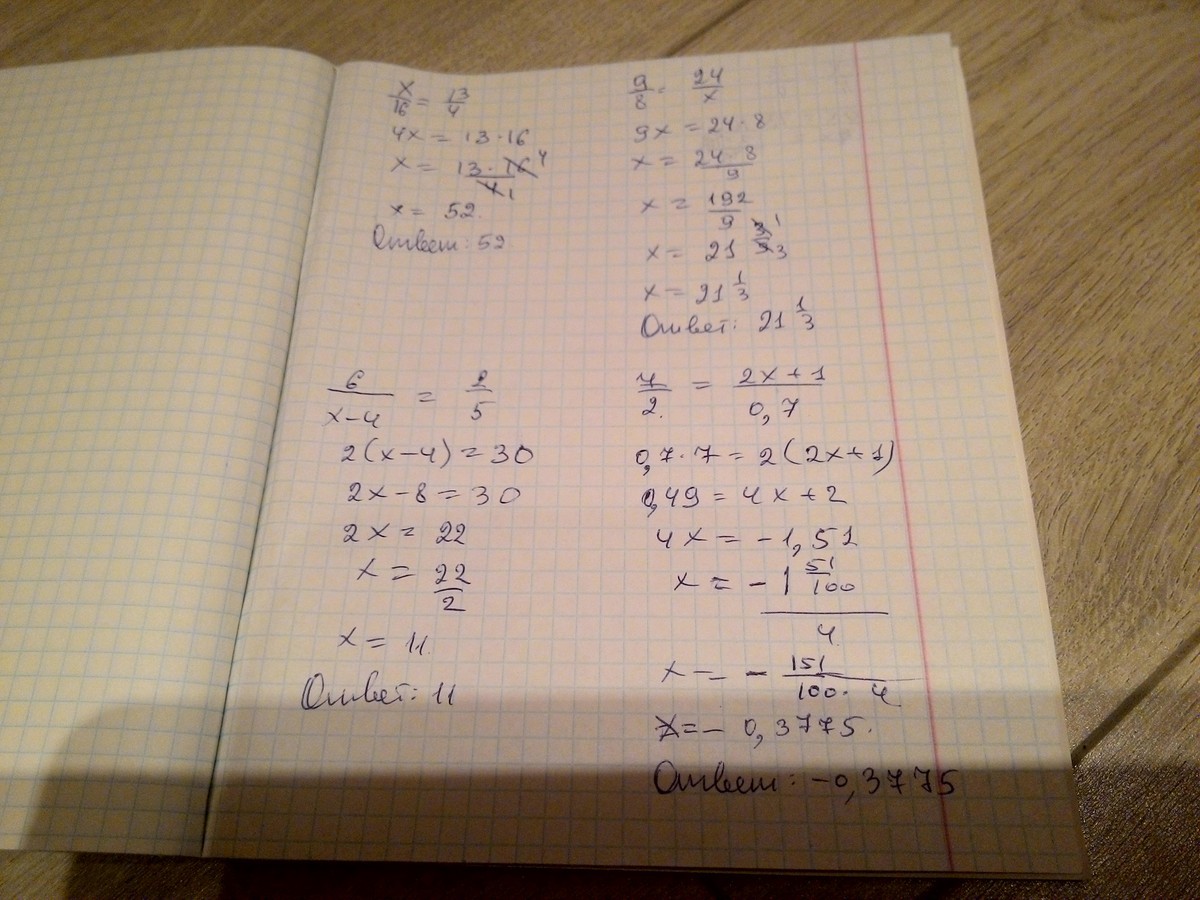 x/16 = 13/4
4x = 13·16
x = 13·16 4/4 1
x = 52.
Ответ: 52
9/8 = 24/x
9x = 24·8
x = 24·8/9
x = 192/9
x = 21 3 1/9 3
x = 21 1/3
Ответ: 21 1/3
6/x-4 = 2/5
2(x-4) = 30
2x-8 = 30
2x = 22
x = 22/2
x = 11.
Ответ: 11
7/2. = 2x+1/0,7
0,7·7 = 2(2x+1)
0,49 = 4x+2
4x = -1,51
x = -1 51/100/4
x = - 151/100·4
x = - 0,3775.
Ответ: -0,3775